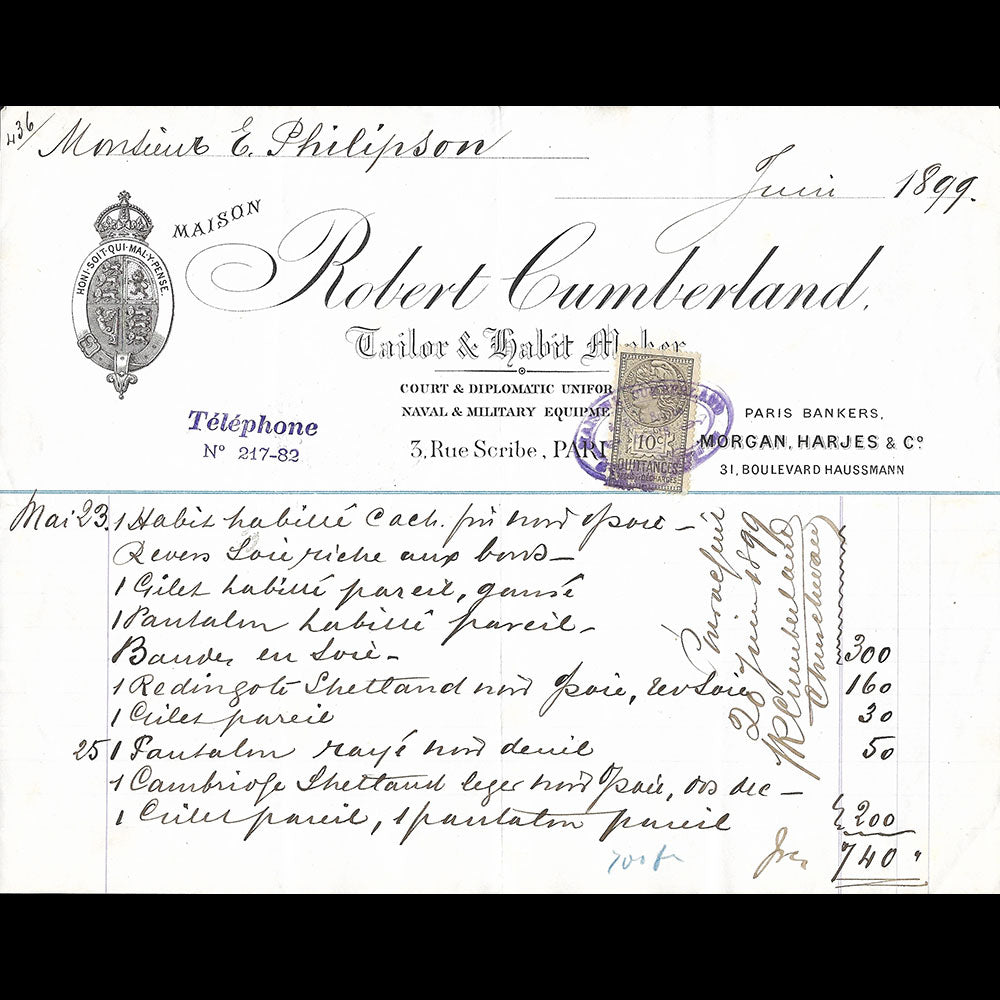 436/
Monsieur E. Philipson
Juin 1899.
MAISON
Robert Cumberland,
HONI·SOIT·QUI·MAL·Y·PENSE.
Tailor & Habit Maker
COURT & DIPLOMATIC UNIFOR
NAVAL & MILITARY EQUIPME
3, Rue Scribe, PARI
Téléphone
N° 217-82
10c
QUITTANCES
PARIS BANKERS,
MORGAN, HARJES & Co
31, BOULEVARD HAUSSMANN
Mai 23. 1 Habit habillé Cach. fin noir soie –
Revers Soie riche aux bords –
1 Gilet habillé pareil, gansé
1 Pantalon habillé pareil –
Bandes en Soie – 300
1 Redingote Shetland noir soie, rev Soie 160
1 Gilet pareil 30
25 1 Pantalon rayé noir deuil 50
1 Cambridge Shetland leger noir soie, dos dec –
1 Gilet pareil, 1 pantalon pareil 200
Pour acquit
20 Juin 1899
R Cumberland
700 fr
Frcs 740 "